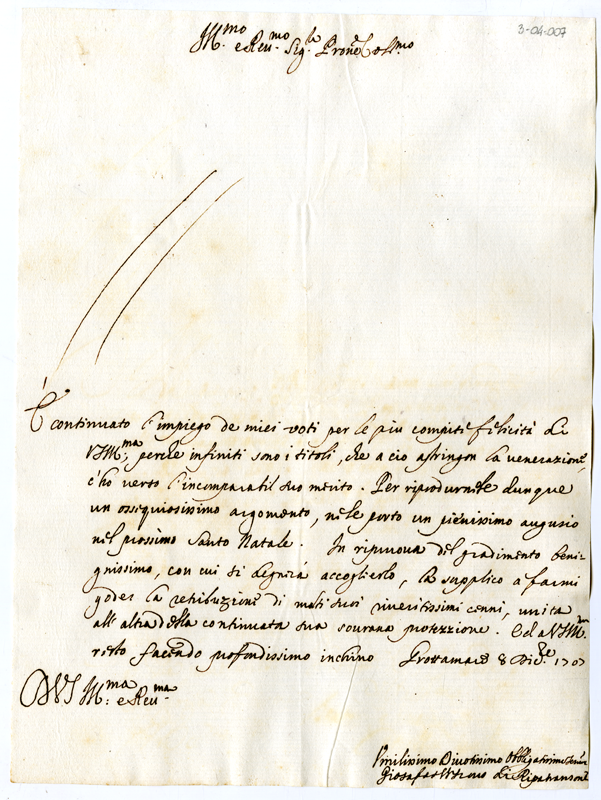 3-04-007
Ill.mo e Reu.mo Sig.re Prone Col.mo
È continuato l'impiego de miei voti per le piu compite felicità di
VSIll.ma, perche infiniti sono i titoli, che a cio astringon la venerazione,
c'ho verso l'incomparabil suo merito. Per riprodurnele dunque
un ossequiosissimo argomento, nele porto un pienissimo augurio
nel prossimo Santo Natale. In ripruova del gradimento beni-
gnissimo, con cui si degnerà accoglierlo, la supplico a farmi
goder la retribuzione di molti suoi riveritissimi cenni, unita
all'altra della continuata sua sourana protezzione. Ed a VSIll.ma
resto facendo profondissimo inchino Grottamare 8 Dic.bre 1707
DVS Ill.ma e Reu.ma
Vmilissimo Diuotissimo Obbligatissimo
Giosafat Vescovo di Ripatransone